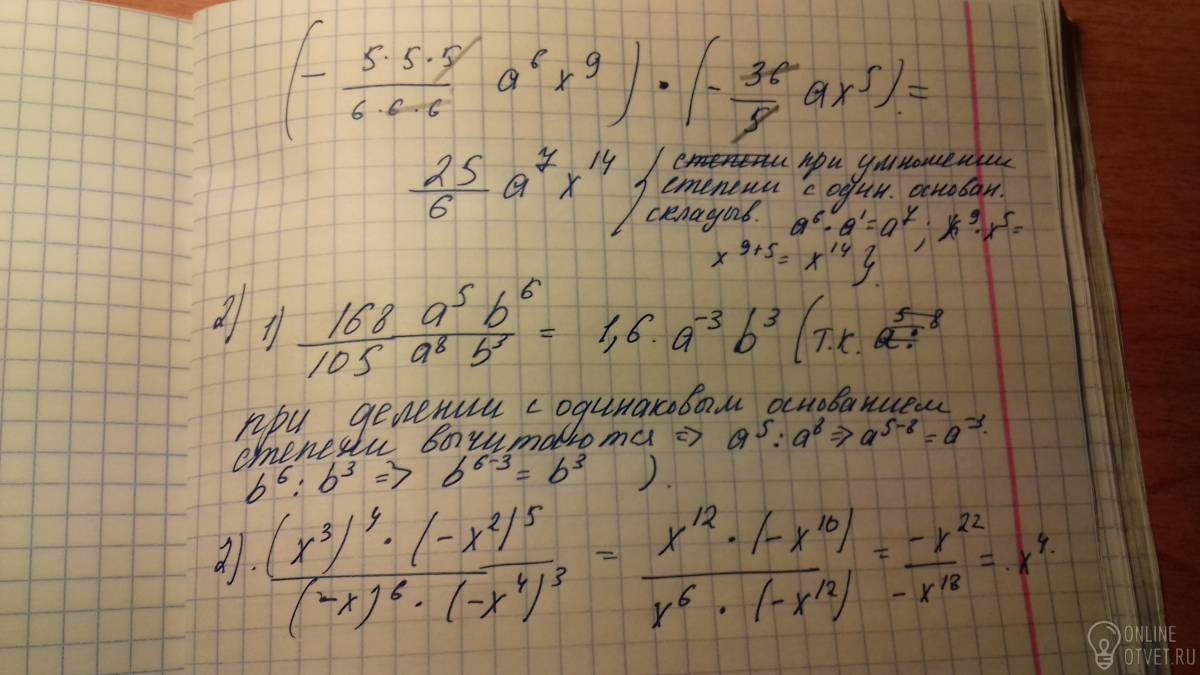 (- 5·5·5/6·6·6 a⁶x⁹) · (- 36/5 ax⁵) =
25/6 a⁷x¹⁴ { степени при умножении
степени с один. основан.
складыв. a⁶·a¹=a⁷; x⁹·x⁵=
x⁹⁺⁵= x¹⁴ }
2) 1) 168 a⁵ b⁶/105 a⁸ b³ = 1,6·a⁻³ b³ (т.к. a: ⁵⁻⁸
при делении с одинаковым основанием
степени вычитаются => a⁵:a⁸=>a⁵⁻⁸=a⁻³.
b⁶:b³ => b⁶⁻³=b³ ).
2). (x³)⁴·(-x²)⁵/(-x)⁶·(-x⁴)³ = x¹²·(-x¹⁰)/x⁶·(-x¹²) = -x²²/-x¹⁸ = x⁴.
ONLINE
OTVET.RU